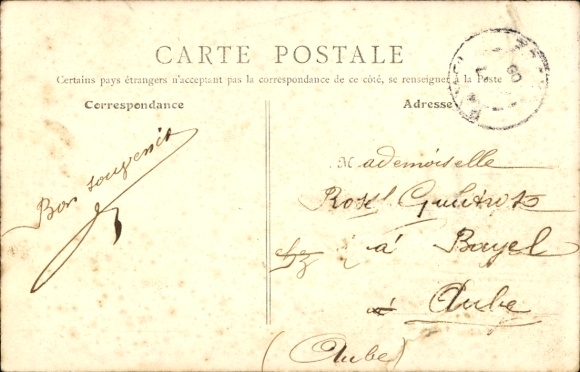 CARTE POSTALE
Certains pays étrangers n'acceptant pas la correspondance de ce côté, se renseigner à la Poste
Correspondance
Adresse
Bon souvenir
Mademoiselle
à Bayel
à Aube
(Aube)